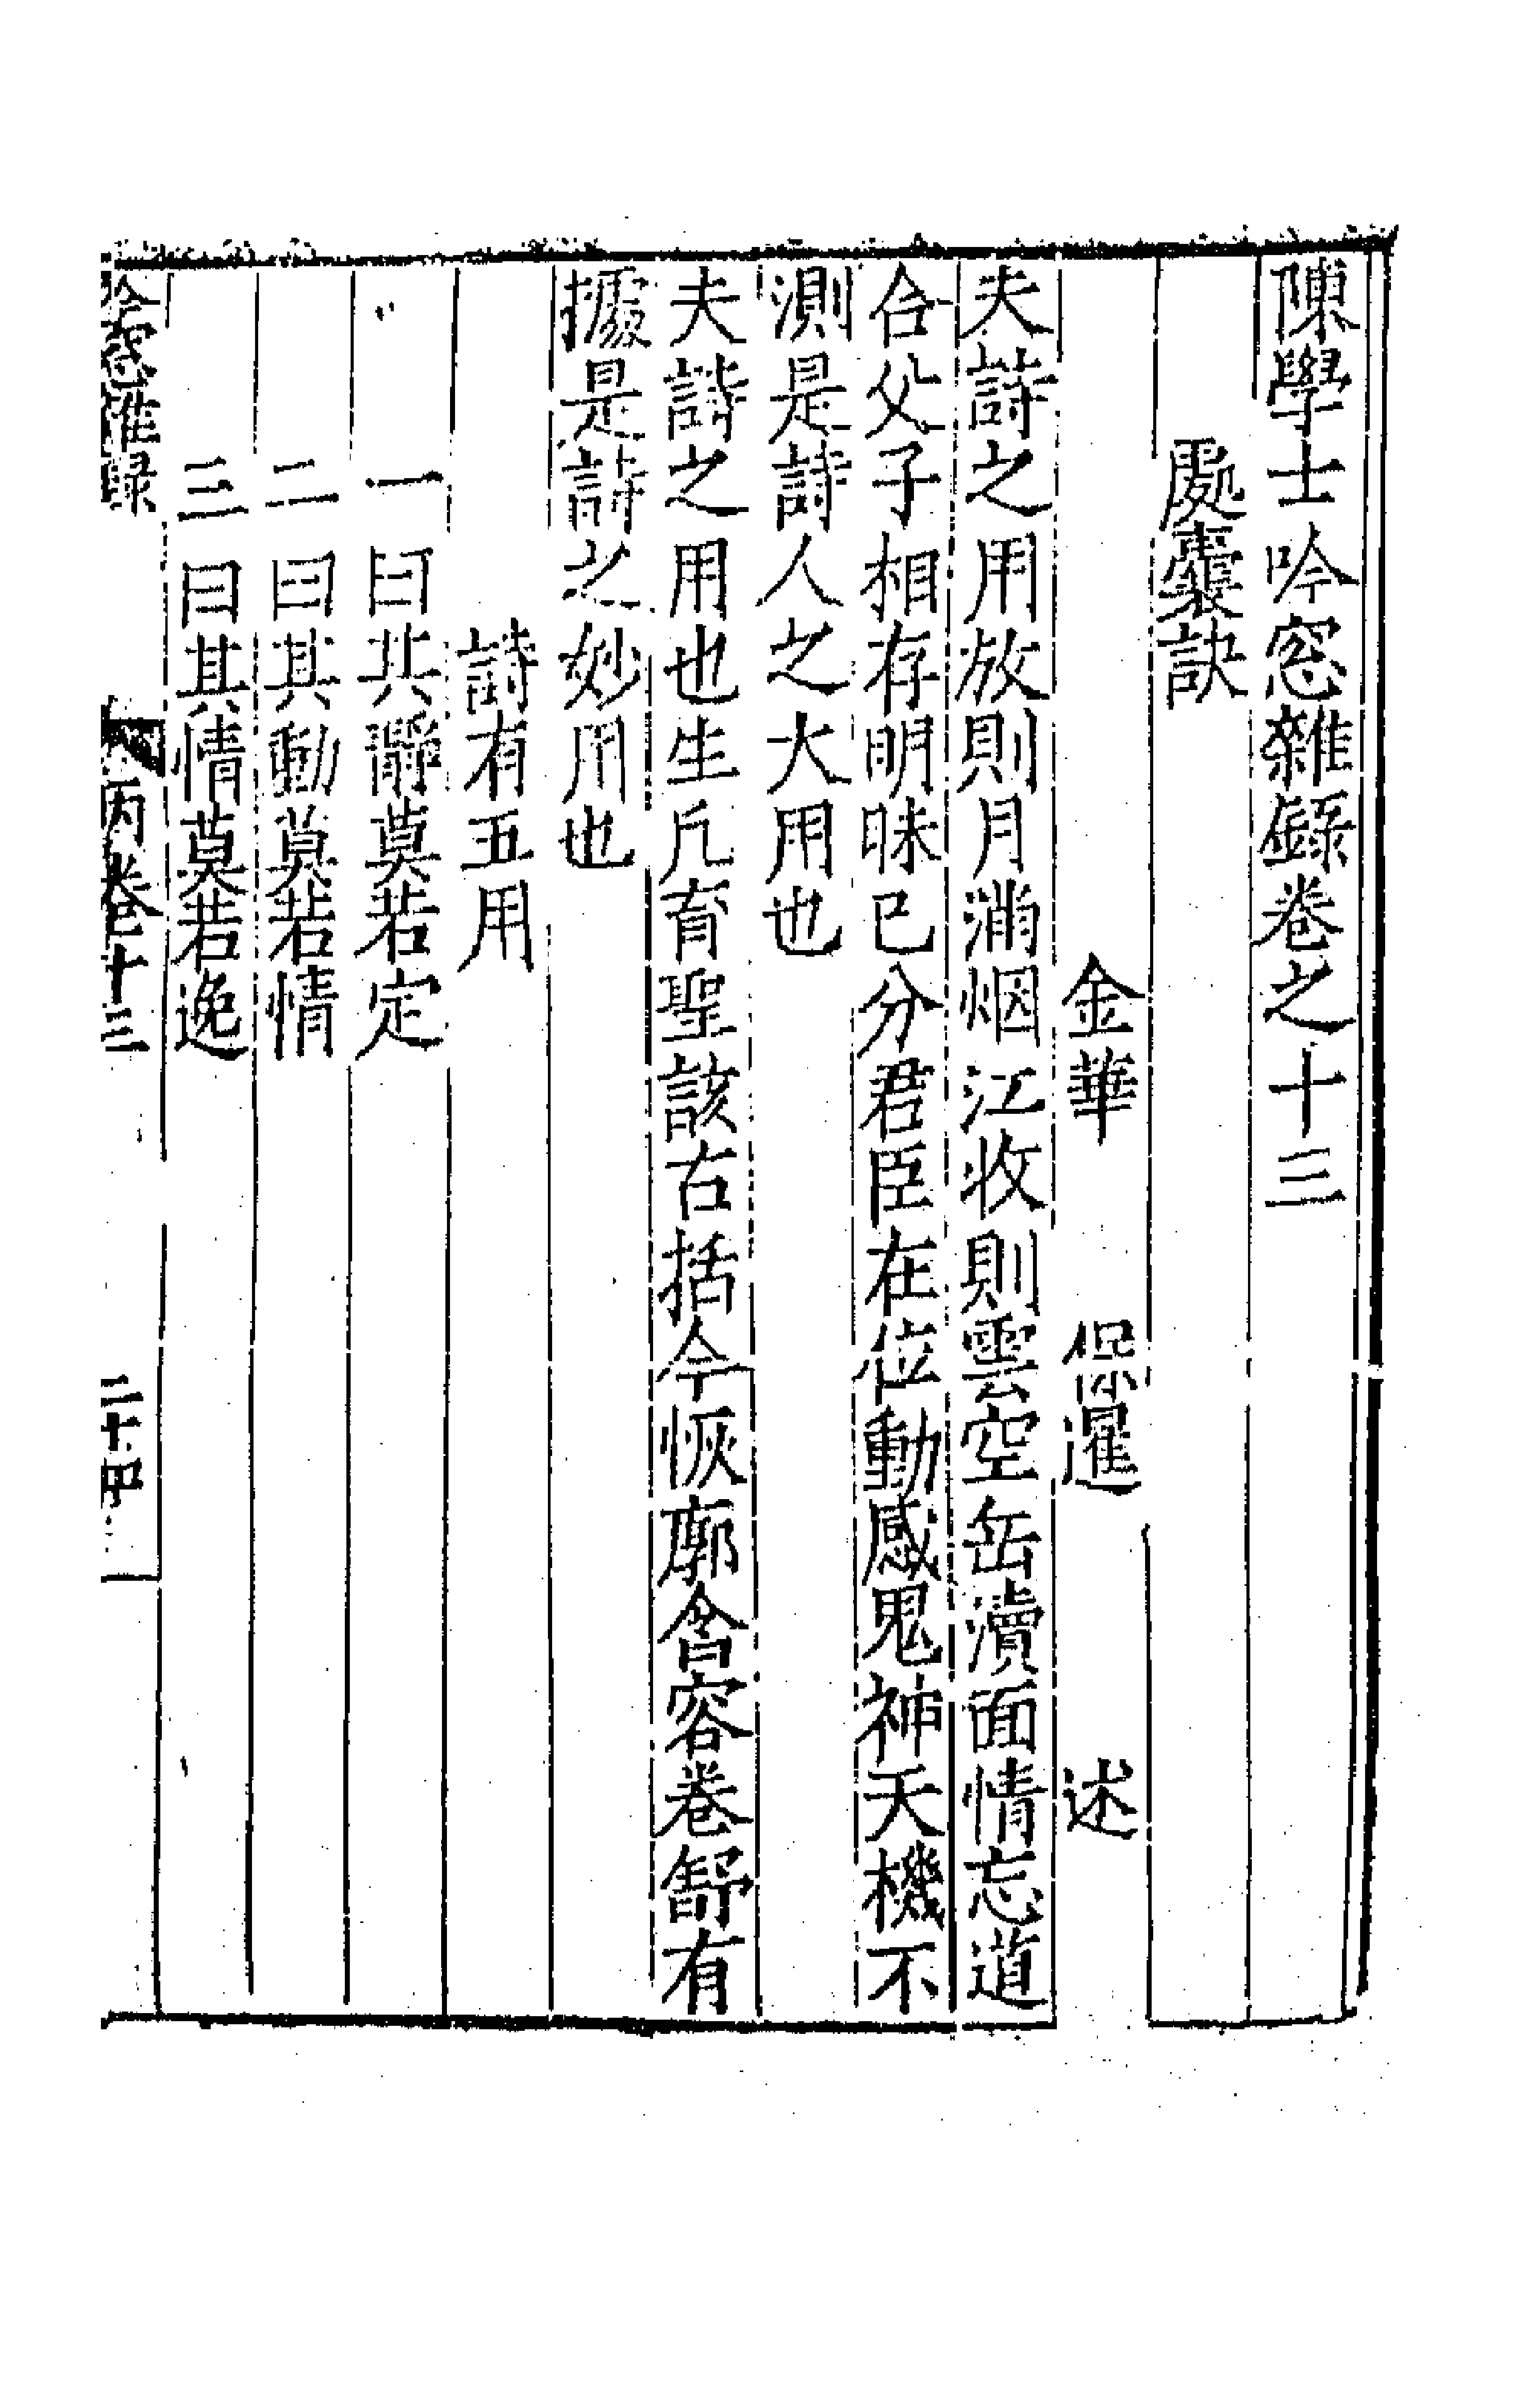 陳學士吟窓雜錄卷之十三
處囊訣
金華 保暹 述
夫詩之用放則月滿烟江收則雲空岳瀆面情忘道
合父子相存明昧已分君臣在位動感鬼神天機不
測是詩人之大用也
夫詩之用也生凡育聖該古括今恢廓含容卷舒有
據是詩之妙用也
詩有五用
一曰其靜莫若定
二曰其動莫若情
三曰其情莫若逸
吟窓雜録 丙卷十三 二十四